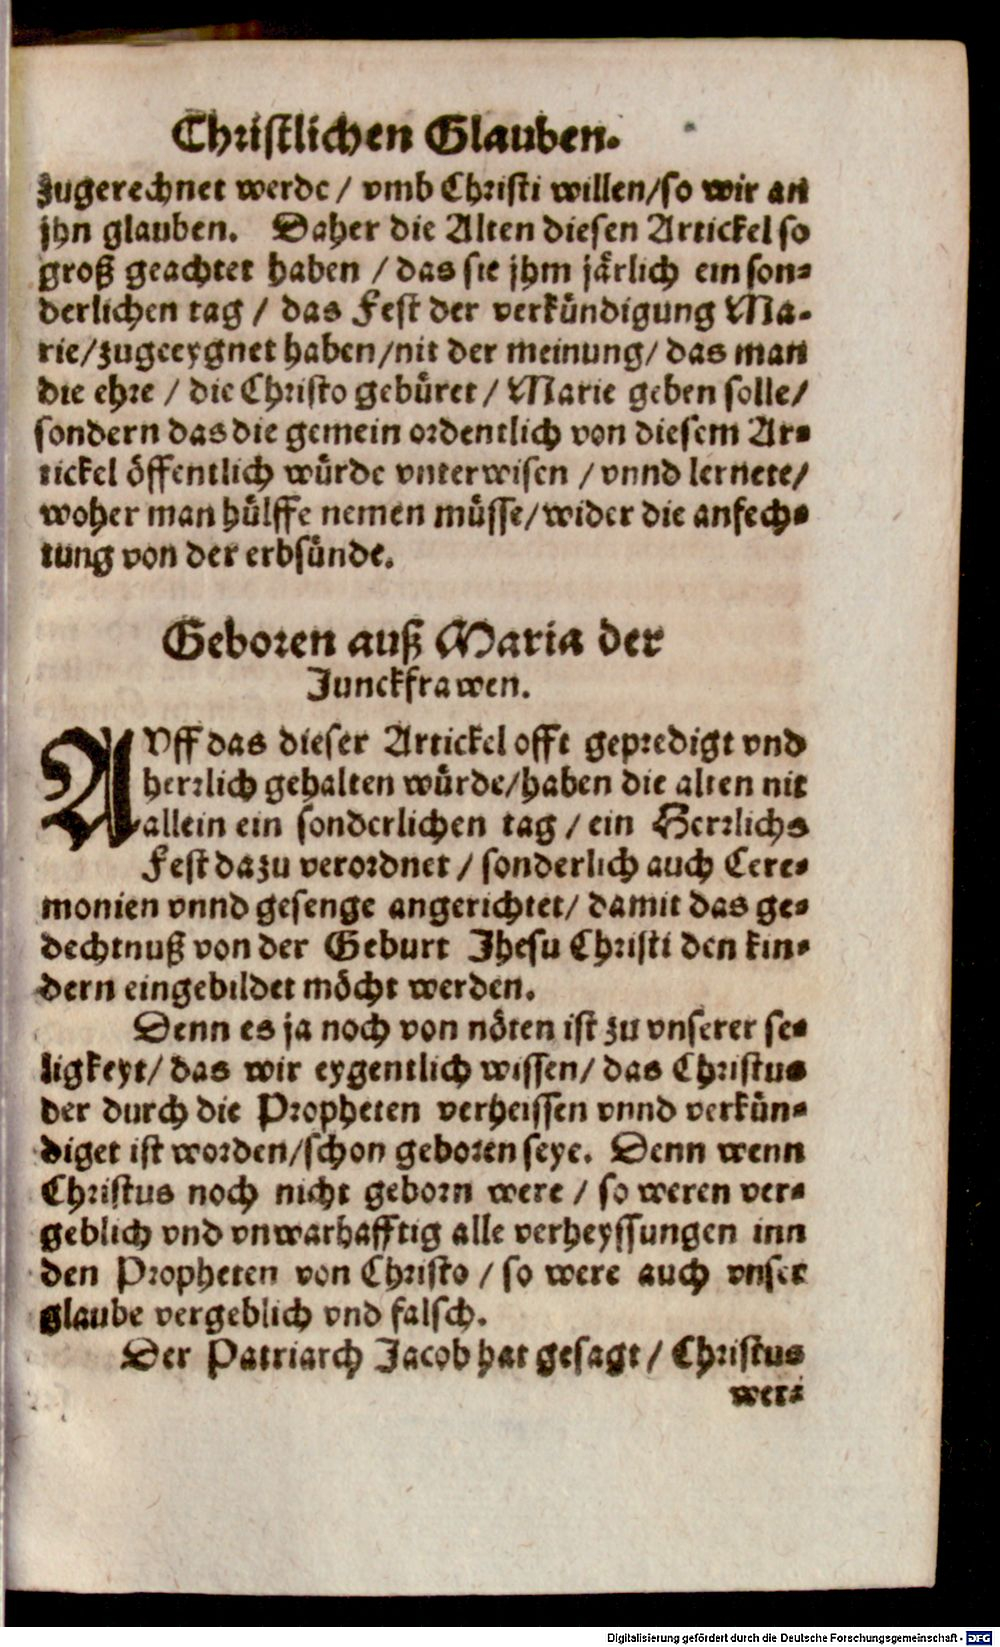 Christlichen Glauben.
zugerechnet werde / vmb Christi willen/so wir an
jhn glauben. Daher die Alten diesen Artickel so
groß geachtet haben / das sie jhm järlich ein son-
derlichen tag / das Fest der verkündigung Ma-
rie/zugeeygnet haben/nit der meinung/ das man
die ehre / die Christo gebüret / Marie geben solle/
sondern das die gemein ordentlich von diesem Ar-
tickel öffentlich würde vnterwisen / vnnd lernete/
woher man hülffe nemen müsse/wider die anfech-
tung von der erbsünde.
Geboren auß Maria der
Junckfrawen.
AVff das dieser Artickel offt gepredigt vnd
herrlich gehalten würde/haben die alten nit
allein ein sonderlichen tag / ein Herrlichs
Fest dazu verordnet / sonderlich auch Cere-
monien vnnd gesenge angerichtet/ damit das ge-
dechtnuß von der Geburt Jhesu Christi den kin-
dern eingebildet möcht werden.
Denn es ja noch von nöten ist zu vnserer se-
ligkeyt/ das wir eygentlich wissen/ das Christus
der durch die Propheten verheissen vnnd verkün-
diget ist worden/schon geboren seye. Denn wenn
Christus noch nicht geborn were / so weren ver-
geblich vnd vnwarhafftig alle verheyssungen inn
den Propheten von Christo / so were auch vnser
glaube vergeblich vnd falsch.
Der Patriarch Jacob hat gesagt / Christus
wer-
Digitalisierung gefördert durch die Deutsche Forschungsgemeinschaft - DFG